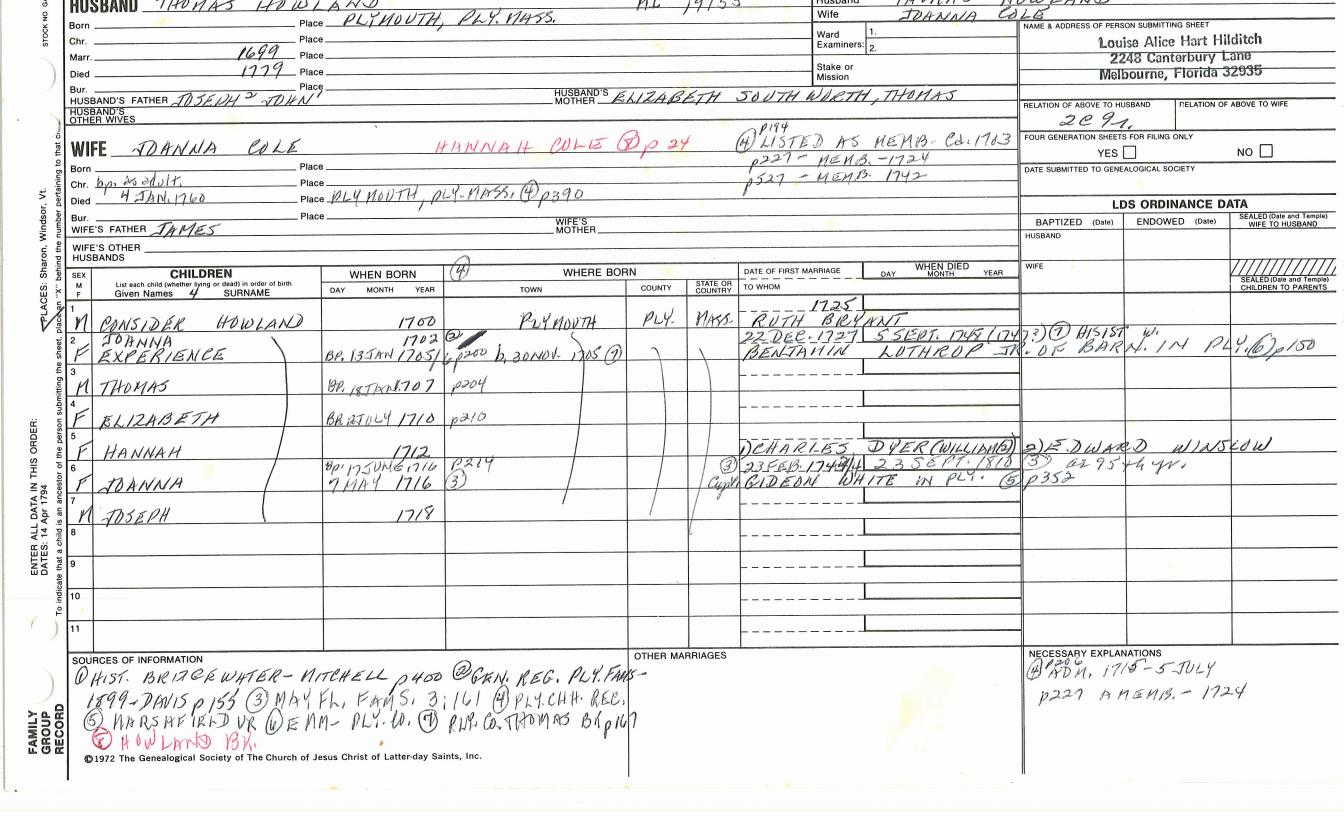 HUSBAND THOMAS HOWLAND
Born Place PLYMOUTH, PLY. MASS.
Chr. Place
Marr. 1699 Place
Died 1779 Place
Bur. Place
HUSBAND'S FATHER JOSEPH² JOHN¹ HUSBAND'S MOTHER ELIZABETH SOUTHWORTH, THOMAS
HUSBAND'S OTHER WIVES
Husband
Wife JOANNA COLE
Ward Examiners: 1.
2.
Stake or Mission
NAME & ADDRESS OF PERSON SUBMITTING SHEET
Louise Alice Hart Hilditch
2248 Canterbury Lane
Melbourne, Florida 32935
RELATION OF ABOVE TO HUSBAND RELATION OF ABOVE TO WIFE
2C 9r.
FOUR GENERATION SHEETS FOR FILING ONLY
YES NO
DATE SUBMITTED TO GENEALOGICAL SOCIETY
WIFE JOANNA COLE HANNAH COLE ⑧ p 24
p194
④ LISTED AS MEMB. Cd. 1703
p227 - MEMB. - 1724
p527 - MEMB. 1742
Born Place
Chr. bp. as adult. Place
Died 4 JAN. 1760 Place PLYMOUTH, PLY. MASS. ④ p390
Bur. Place
WIFE'S FATHER JAMES WIFE'S MOTHER
WIFE'S OTHER HUSBANDS
LDS ORDINANCE DATA
BAPTIZED (Date) ENDOWED (Date) SEALED (Date and Temple) WIFE TO HUSBAND
HUSBAND
WIFE
SEALED (Date and Temple) CHILDREN TO PARENTS
SEX M F
CHILDREN
List each child (whether living or dead) in order of birth
Given Names 4 SURNAME
WHEN BORN
DAY MONTH YEAR
④ WHERE BORN
TOWN COUNTY STATE OR COUNTRY
DATE OF FIRST MARRIAGE
TO WHOM
WHEN DIED
DAY MONTH YEAR
1 1725
M CONSIDER HOWLAND 1700 PLYMOUTH PLY. MASS. RUTH BRYANT
2 JOANNA 1702 ② 22 DEC. 1727 5 SEPT. 1745 (1747?) ⑦ HIS 1ST W.
F EXPERIENCE BP. 13 JAN 1705/6 p200 b, 30 NOV. 1705 ⑦ BENJAMIN LOTHROP JR. OF BARN. IN PLY. ⑥ p150
3
M THOMAS BP. 18 JAN. 1707 p204
4
F ELIZABETH BP. 2 JULY 1710 p210
5 1) CHARLES DYER (WILLIAM②) 2) EDWARD WINSLOW
F HANNAH 1712
6 BP. 17 JUNE 1716 P214 ③ 23 FEB. 1743/4 23 SEPT. 1810 ③ ae 95th yr.
F JOANNA 7 MAY 1716 ③ Capt. GIDEON WHITE IN PLY. ⑤ p352
7
M JOSEPH 1718
8
9
10
11
SOURCES OF INFORMATION
① HIST. BRIDGEWATER - MITCHELL p400 ② GEN. REG. PLY. FAMS -
1899 - DAVIS p155 ③ MAY FL. FAMS. 3:161 ④ PLY. CHH. REC.
⑤ MARSHFIELD VR ⑥ E MM - PLY. CO. ⑦ PLY. CO. THOMAS BK p167
⑧ HOWLAND BK.
OTHER MARRIAGES
NECESSARY EXPLANATIONS
p206
④ ADM. 1715 - 5 JULY
p227 A MEMB. - 1724
©1972 The Genealogical Society of The Church of Jesus Christ of Latter-day Saints, Inc.
PLACES: Sharon, Windsor, Vt.
ENTER ALL DATA IN THIS ORDER:
DATES: 14 Apr 1794
FAMILY GROUP RECORD